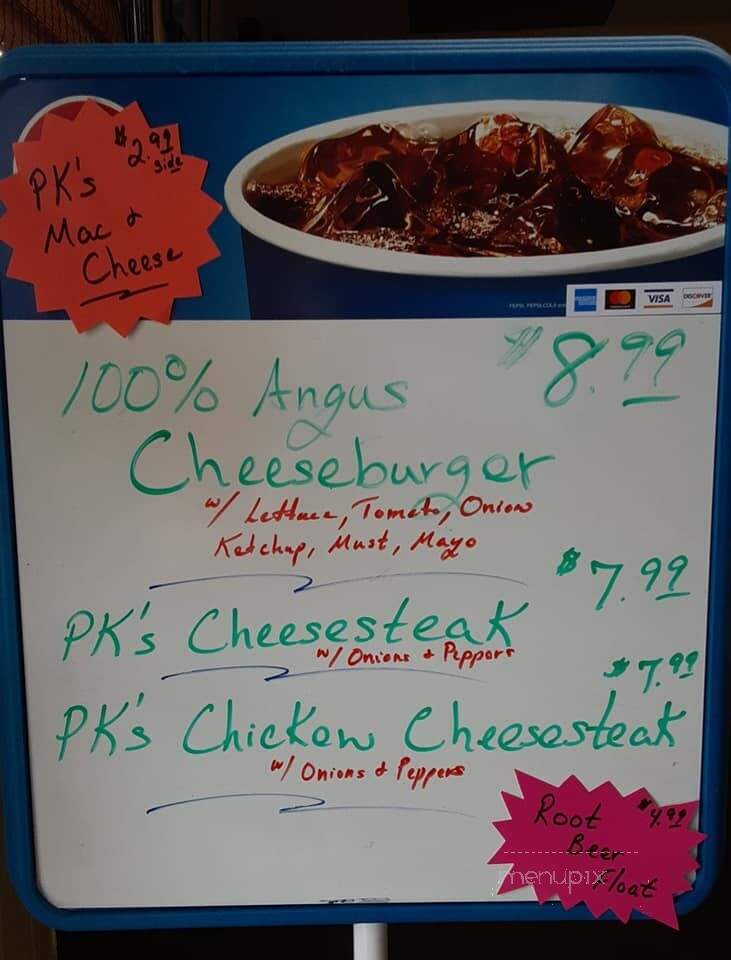 $2.99
side
PK's
Mac &
Cheese
PEPSI, PEPSI-COLA
VISA
DISCOVER
$8.99
100% Angus
Cheeseburger
w/ Lettuce, Tomato, Onion
Ketchup, Must, Mayo
$7.99
PK's Cheesesteak
w/ Onions & Peppers
$7.99
PK's Chicken Cheesesteak
w/ Onions & Peppers
Root $4.99
Beer
Float
menupix